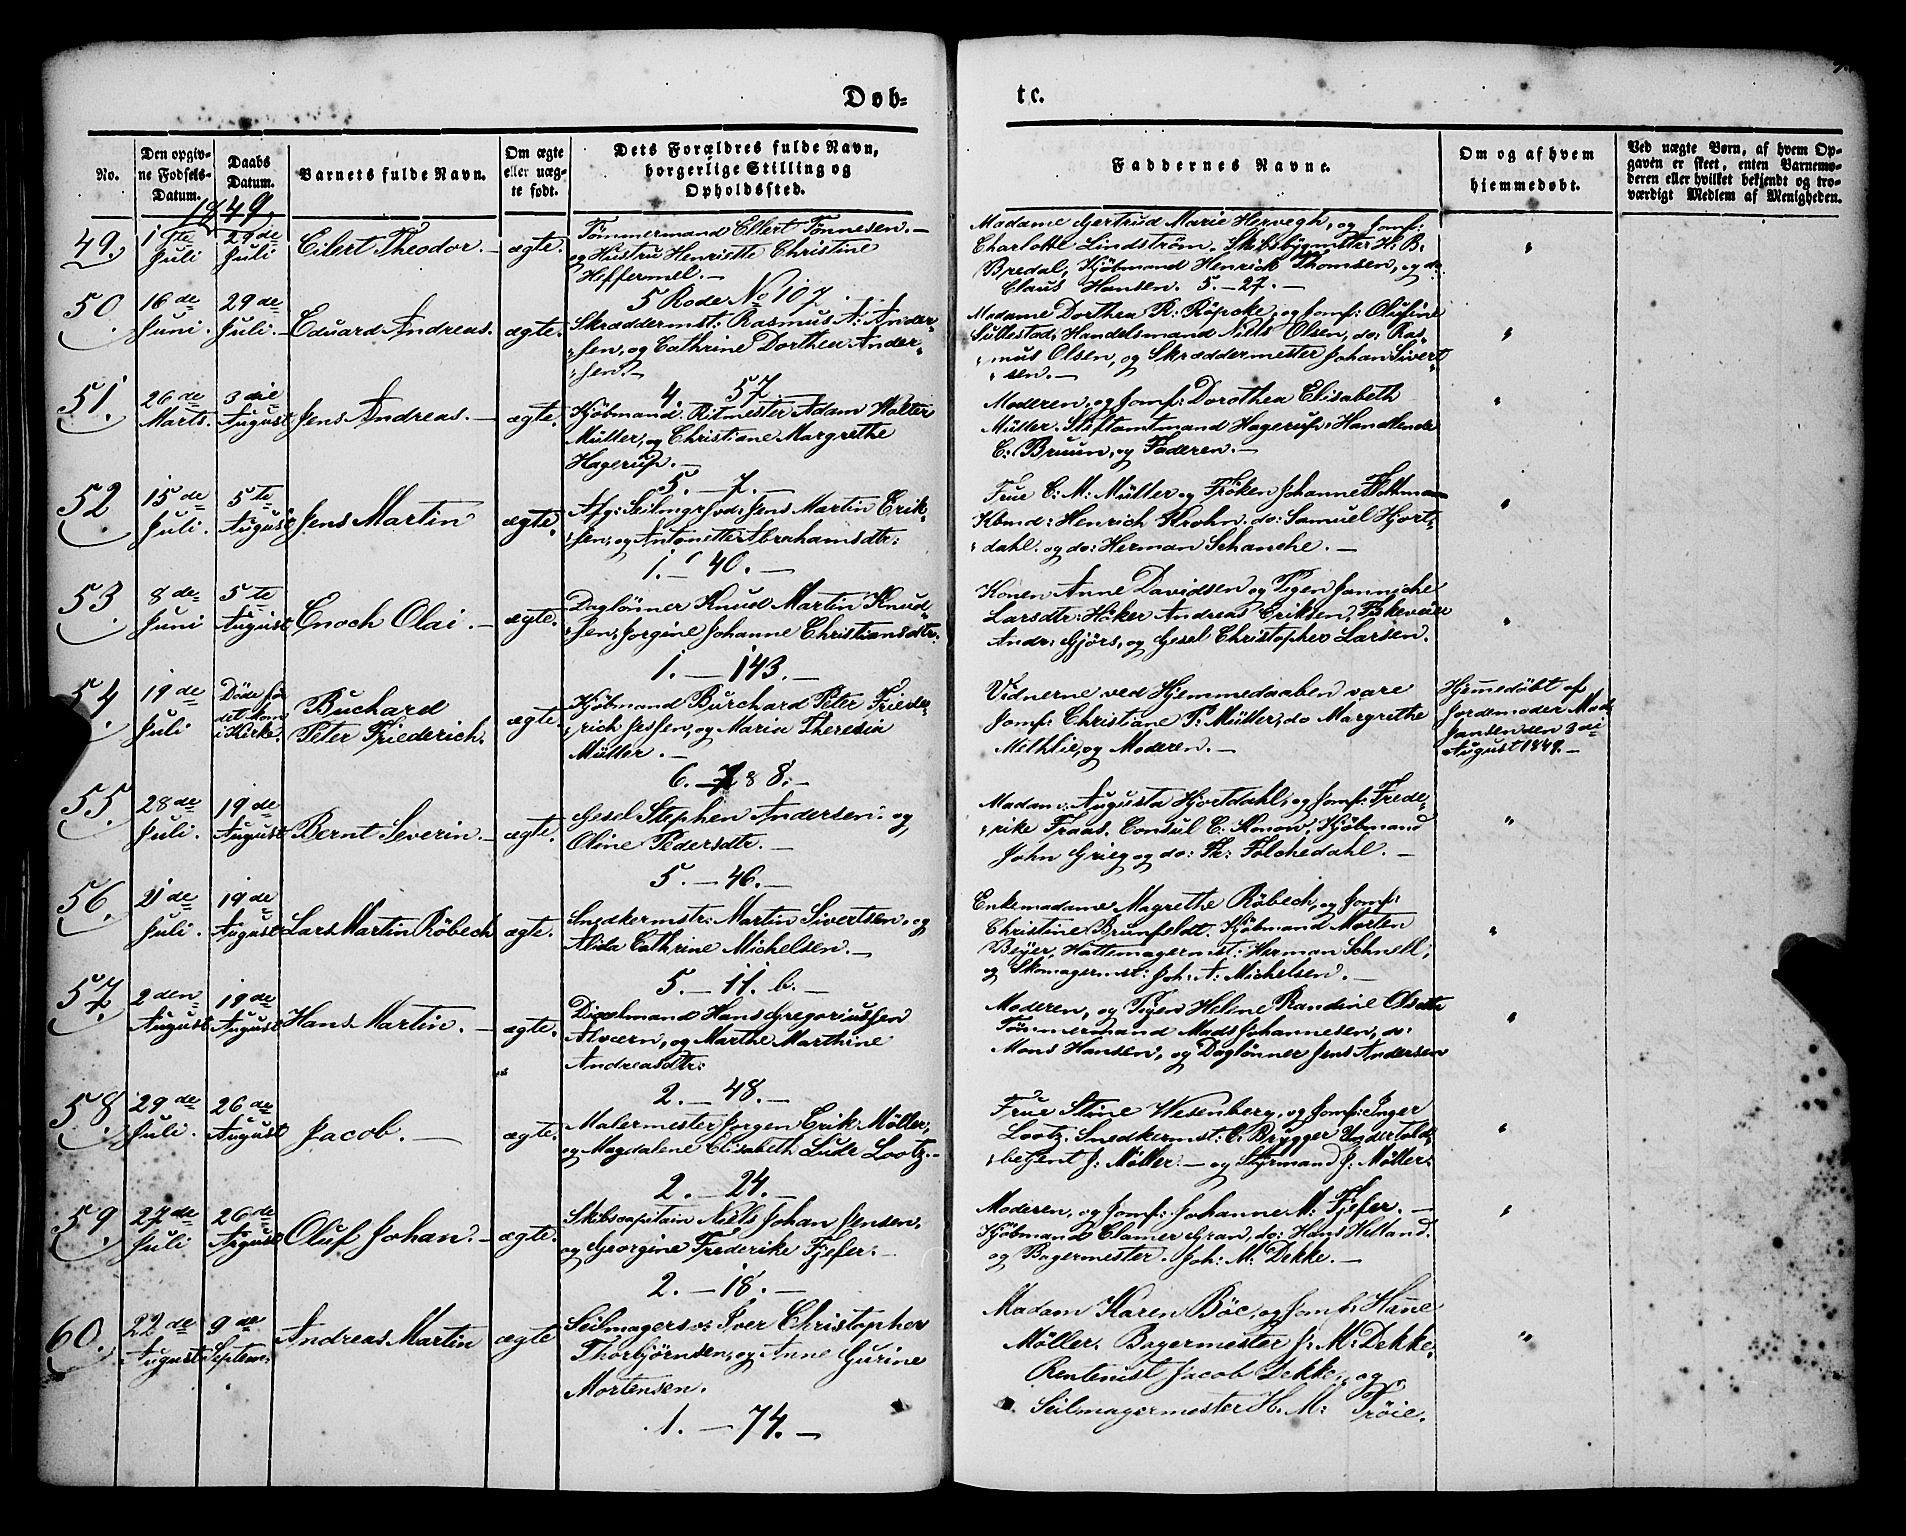 Døb-
tc.
No.
Den opgiv-
ne Fødsels-
Datum.
Daabs
Datum.
Barnets fulde Navn.
Om ægte
eller uæg-
te født.
Dets Forældres fulde Navn,
borgerlige Stilling og
Opholdssted.
Faddernes Navne.
Om og af hvem
hjemmedøbt.
Ved uægte Børn, af hvem Op-
gaven er skeet, enten Barnemo-
deren eller hvilket bekjendt og tro-
værdigt Medlem af Menigheden.
1849,
49.
1ste
Juli
29de
Juli
Eilert Theodor. -
ægte.
Tømmermand Ellert Tønnesen. -
og Hustru Henriette Christine
Heffermel. -
5 Rode No 107.
Madame Gertrud Marie Hervegh, og Jomf:
Charlotte Lindström. Skibsbygmster H. B.
Bredal, Kjöbmand Henrick Thomsen, og do
Claus Hansen. 5. - 27. -
"
50
16de
Juni.
29de
Juli. -
Eduard Andreas.
ægte.
Skræddermst: Rasmus A: Ander-
sen, og Cathrine Dorthea Ander-
sen. -
4. 57. -
Madame Dorthea R. og Jomf: Olufine
Sillestad; Handelsmand Nills Olsen, do: Ras-
mus Olsen, og Skræddermester Johan Sivert
sen. -
"
51.
26de
Marts.
3die
August
Jens Andreas. -
ægte.
Kjöbmand. Ritmester Adam Walter
Müller, og Christiane Margrethe
Hagerup. -
5. - 7. -
Moderen, og Jomf: Dorothea Elisabeth
Müller. Stiftamtmand Hagerup. Handlende
C: Bruun, og Faderen. -
"
52
15de
Juli.
5te
August
Jens Martin
ægte.
Afg: Jens Martin Erik-
sen, og Antonette Abrahamsdtr:
1. - 40. -
Frue C: M: Müller og Fröken Johanne
Kbmd: Henrich Krohn. do: Samuel Hjort-
dahl. og do: Herman Schanche. -
"
53
8de
Juni
5te
August
Enoch Olai. -
ægte.
Daglönner Knud Martin Knud-
sen, Jorgine Johanne Christiansdtr.
1. - 143. -
Konen Anne Davidsen og Pigen Janniche
Larsdtr: Höker Andreas Eriksen,
Andr: Gjörs, og Gesel Christopher Larsen.
"
54.
19de
Juli
Döde før
det kom
i Kirke.
Buchard
Peter Friederich.
ægte
Kjöbmand Burchard Peter Friede-
rich Jessen, og Maria Theresia
Müller. -
6. - 88. -
Vidnerne ved Hjemmedaaben vare
Jomf: Christiane P: Müller, do Margrethe
og Moderen. -
Hjmedöbt af
Jordemoder Mad:
Jansen den 3di
August 1849. -
55.
28de
Juli.
19de
August
Bernt Severin. -
ægte.
Gesel Stephen Andersen. og
Oline Pedersdtr. -
5. - 46. -
Madam: Augusta Hjortdahl, og Jomf: Frede-
rike Fraas. Consul C: Konow, Kjöbmand
John Grieg og do: Fr: Fölchedahl. -
"
56.
21de
Juli.
19de
August
Lars Martin Röbech
ægte.
Snedkermstr: Martin Sivertsen. og
Alida Cathrine Michelsen. -
5. - 11. b. -
Enkemadame Magrethe Röbech, og Jomf:
Christine Brunfeldt. Kjöbmand Morten
Beÿer, Hattemagermst: Herman Schnell,
og Skomagermst: Joh: A: Michelsen. -
"
57.
2den
August
19de
August
Hans Martin. -
ægte.
Hans Gregoriussen
Alværn, og Marthe Marthine
Andreasdtr:
2. - 48. -
Moderen, og Pigen Helene Randine Olsdtr
Tømmermand Mads Johannesen, do:
Mons Hansen, og Daglönner Jens Andersen
"
58.
29de
Juli.
26de
August
Jacob. -
ægte.
Malermester Jørgen Erik Møller,
og Magdalene Elisabeth Lude Lootz. -
2. - 24. -
Frue Stine Wesenberg, og Jomf: Inger
Lootz. Snedkermst: C: Brygger Undertold-
betjent J: Møller. - og Styrmand J: Møller.
"
59.
27de
Juli
26de
August
Oluf Johan. -
ægte.
Skibscapitain Niels Johan Jensen,
og Georgine Frederike Fjefer. -
2. - 18. -
Moderen, og Jomf: Johanne M: Fjefer. -
Kjöbmand Clamer Gran, do: Hans Hilland.
og Bagermester. Joh: M: Dekke. -
"
60.
22de
August
9de
Septem:
Andreas Martin
ægte
Seilmagersv: Iver Christopher
Thorbjörnsen, og Anne Gurine
Mortensen.
1. - 74. -
Madam Karen Böe, og Jomf: Hane
Møller. Bagermester J: M: Dekke.
Rentenist Jacob Dekke, og
Seilmagermester H. M: Tröie.
"